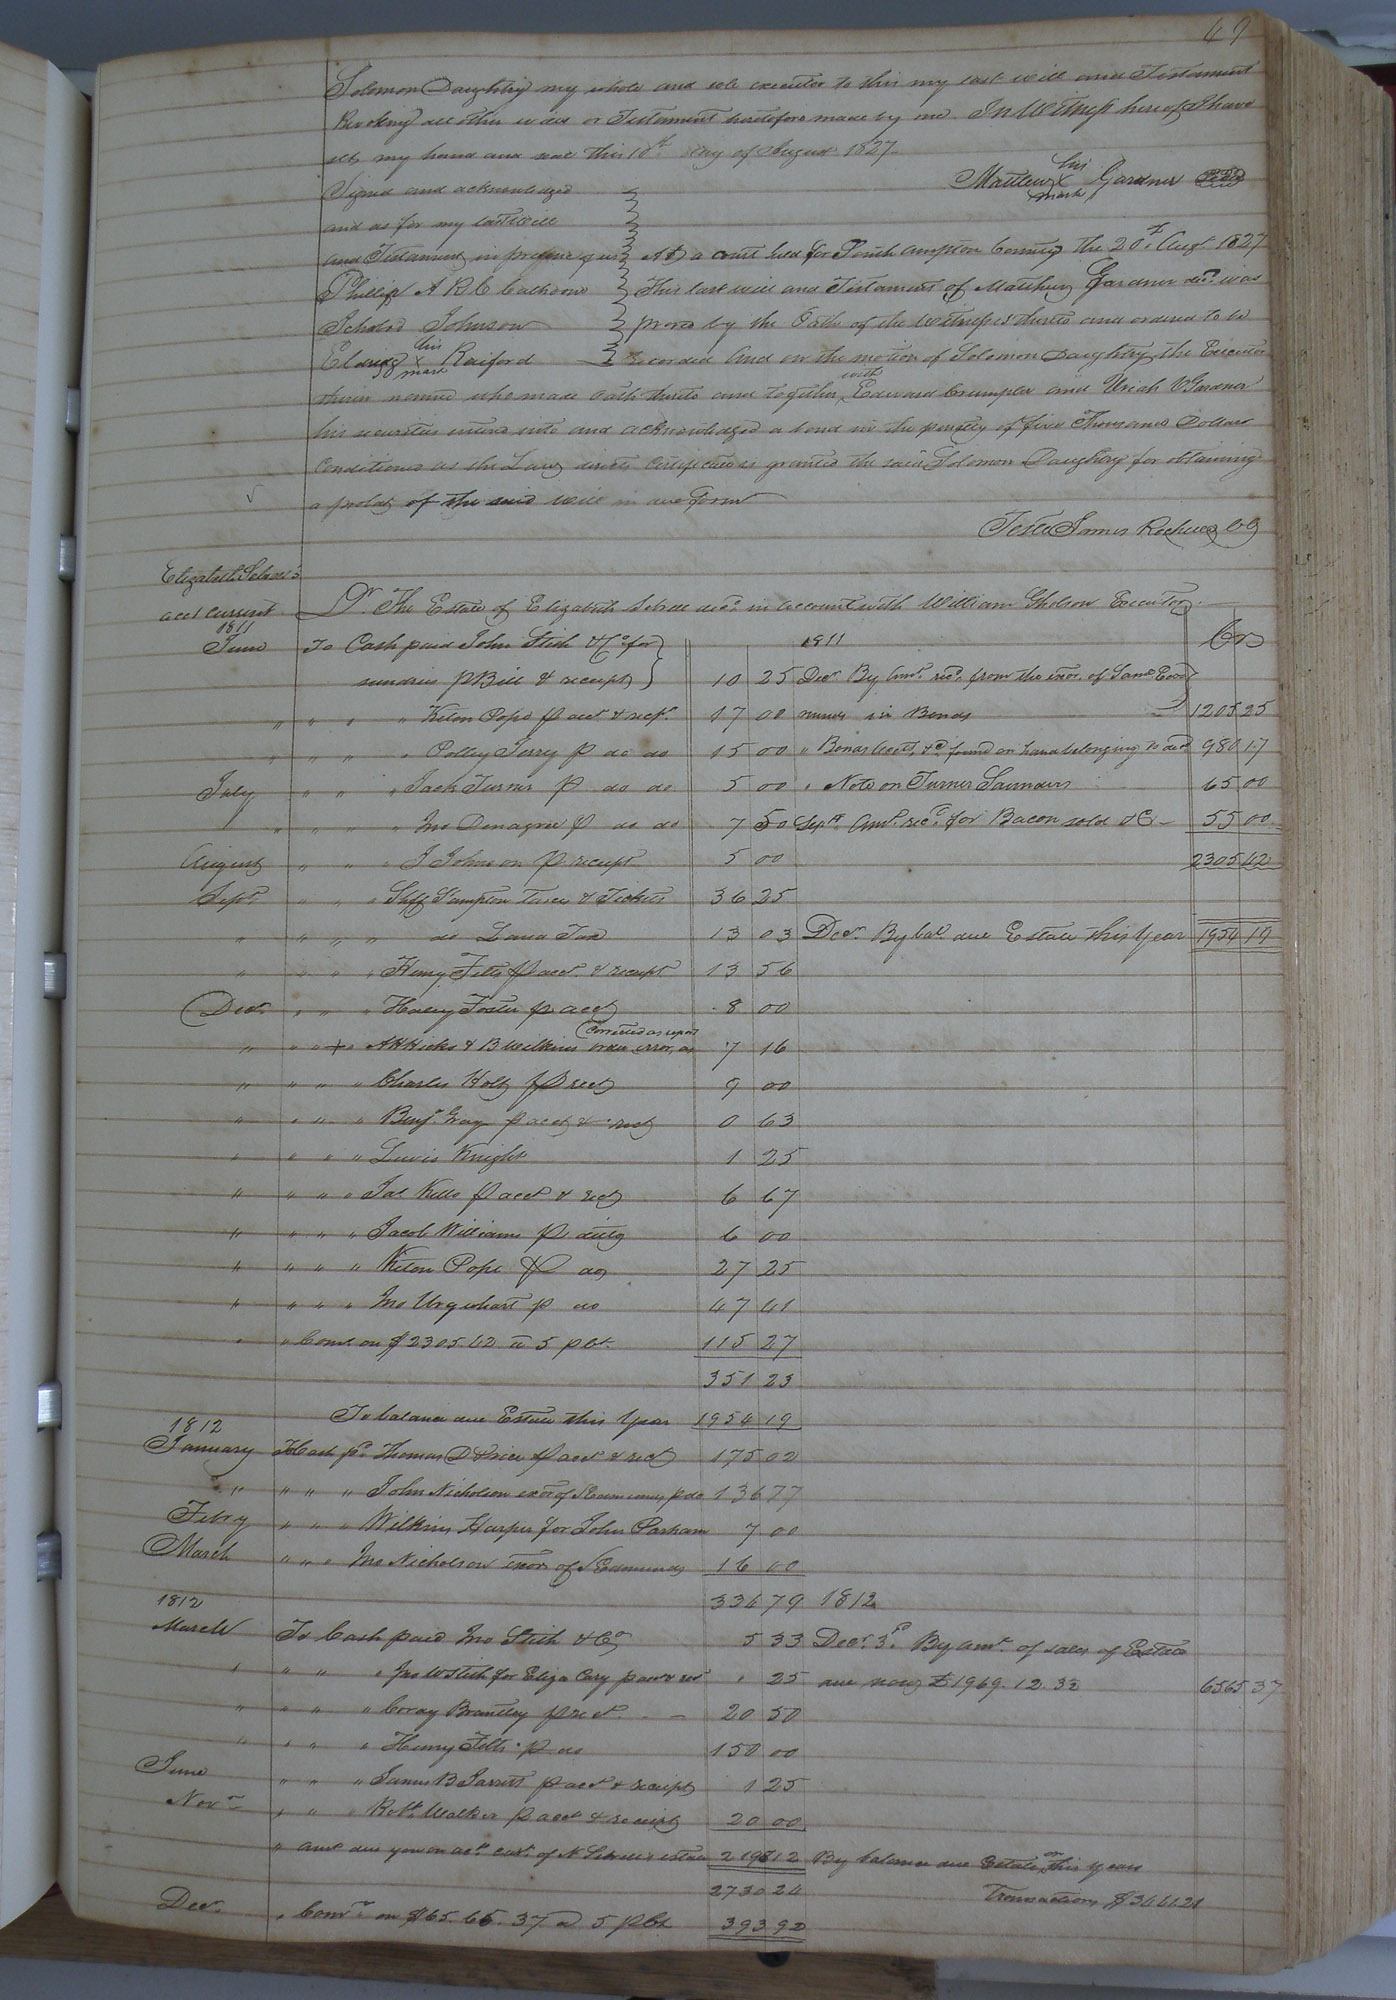 69
Solomon Daughtry my whole and sole executor to this my last will and Testament
Revoking all other wills or Testament heretofore made by me. In Witness hereof I have
set my hand and seal this 10th day of August 1827.
his
Matthew X Gardner Seal
mark
Signd and acknowledged
and as for my last will
and Testament in presence of us
Phillip A R C Calhoun
Johnson
his
X Raiford
mark
At a court held for Southampton County the 20th Augt 1827
This last will and Testament of Matthew Gardner decd was
proved by the Oath of the Witnesses thereto and ordered to be
recorded And on the motion of Solomon Daughtry the Executor
therein named who made oath thereto and together with Edward Crumpler and Uriah V Gardner
his securities entered into and acknowledged a bond in the penalty of five Thousand Dollars
Conditioned as the Law directs Certificate is granted the said Solomon Daughtry for obtaining
a probat of the said will in due form
Teste James Rochelle CC
Elizabeth
acct current
Dr The Estate of Elizabeth decd in account with William Gholson Executor
Cr
1811
June To Cash paid John Stith & Co for
sundries p Bill & receipt 10 25
" " " " Keton Pope p acct & rect. 17 00
" " " " Polley p do do 15 00
July " " " Jack Turner p do do 5 00
" " " " Jno p do do 7 50
August " " " J Johnson p receipt 5 00
Sept " " " Shff Sampton Taxes & Tickets 36 25
" " " " do Land Tax 13 03
" " " " Henry Felts p acct & receipt 13 56
Decr " " " Haley Foster p acct 8 00
(Corrected as upon
" " " + " A H Hicks & B Wilkins order error, as 7 16
" " " " Charles Holt p rect 9 00
" " " " Benj. Gray p acct & rect 0 63
" " " " Lewis Knight 1 25
" " " " Jas Kello p acct & rect 6 67
" " " " Jacob Williams p ditto 6 00
" " " " Keton Pope p do 27 25
" " " " Jno Urquhart p do 47 41
" " Coms on $2305.42 a 5 p Ct. 115 27
351 23
To balance due Estate this Year 1954 19
1811
Decr By Amt recd. from the exor. of
in Bonds 1205 25
" Bonds &c found on hand belonging to decd 980 17
" Note on Turner Saunders 65 00
Sept Amt. recd. for Bacon sold &c 55 00
2305 42
Decr. By bal due Estate this Year 1954 19
1812
January To Cash pd. Thomas p acct & rect 175 02
" " " " John Nicholson exor of Edmunds p do 136 77
Febry " " " Wilkins Harper for John Parham 7 00
March " " " Jno Nicholson exor of Edmunds 16 00
334 79
1812
March To Cash paid Jno Stith & Co 5 33
" " " " Jno W Stith for Eliza Cary p acct & rect " 25
" " " " Brantley p rect. 20 50
" " " " Henry Felts p do 150 00
June " " " James B Jarratt p acct & receipt 1 25
Novr " " " Robt. Walker p acct & receipt 20 00
" amt due you on act. curt. of N estate 2198 12
2730 24
Decr. " Comr on $65.65.37 a 5 p Ct 393 92
1812
Decr. 3d. By amt. of sales of Estate
due £1969.12.32 6565 37
By balance due Estate on this years
Transactions $3441.21